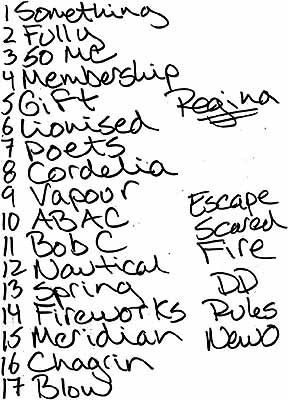 1 Something
2 Fully
3 50 MC
4 Membership
5 Gift
Regina
6 Lionised
7 Poets
8 Cordelia
9 Vapour
Escape
10 ABAC
Scared
11 Bob C
Fire
12 Nautical
13 Spring
DD
14 Fireworks
Rules
15 Meridian
NewO
16 Chagrin
17 Blow